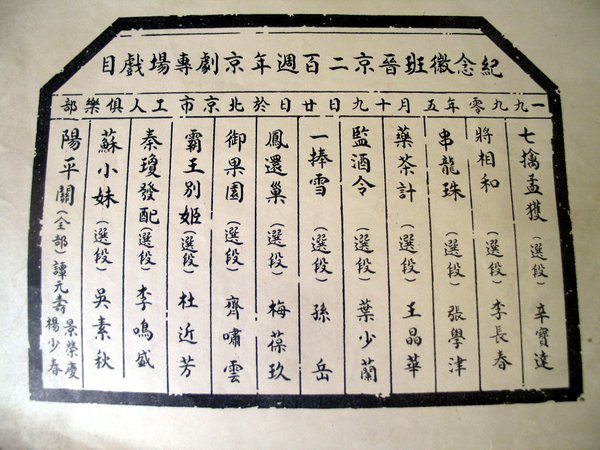 紀念徽班晉京二百週年京劇專場戲目
一九九零年五月十九日廿日於北京市工人俱樂部
七擒孟獲(選段)辛寶達
將相和(選段)李長春
串龍珠(選段)張學津
藥茶計(選段)王晶華
監酒令(選段)葉少蘭
一捧雪(選段)孫岳
鳳還巢(選段)梅葆玖
御果園(選段)齊嘯雲
霸王別姬(選段)杜近芳
秦瓊發配(選段)李鳴盛
蘇小妹(選段)吳素秋
陽平關(全部)譚元壽 景榮慶 楊少春